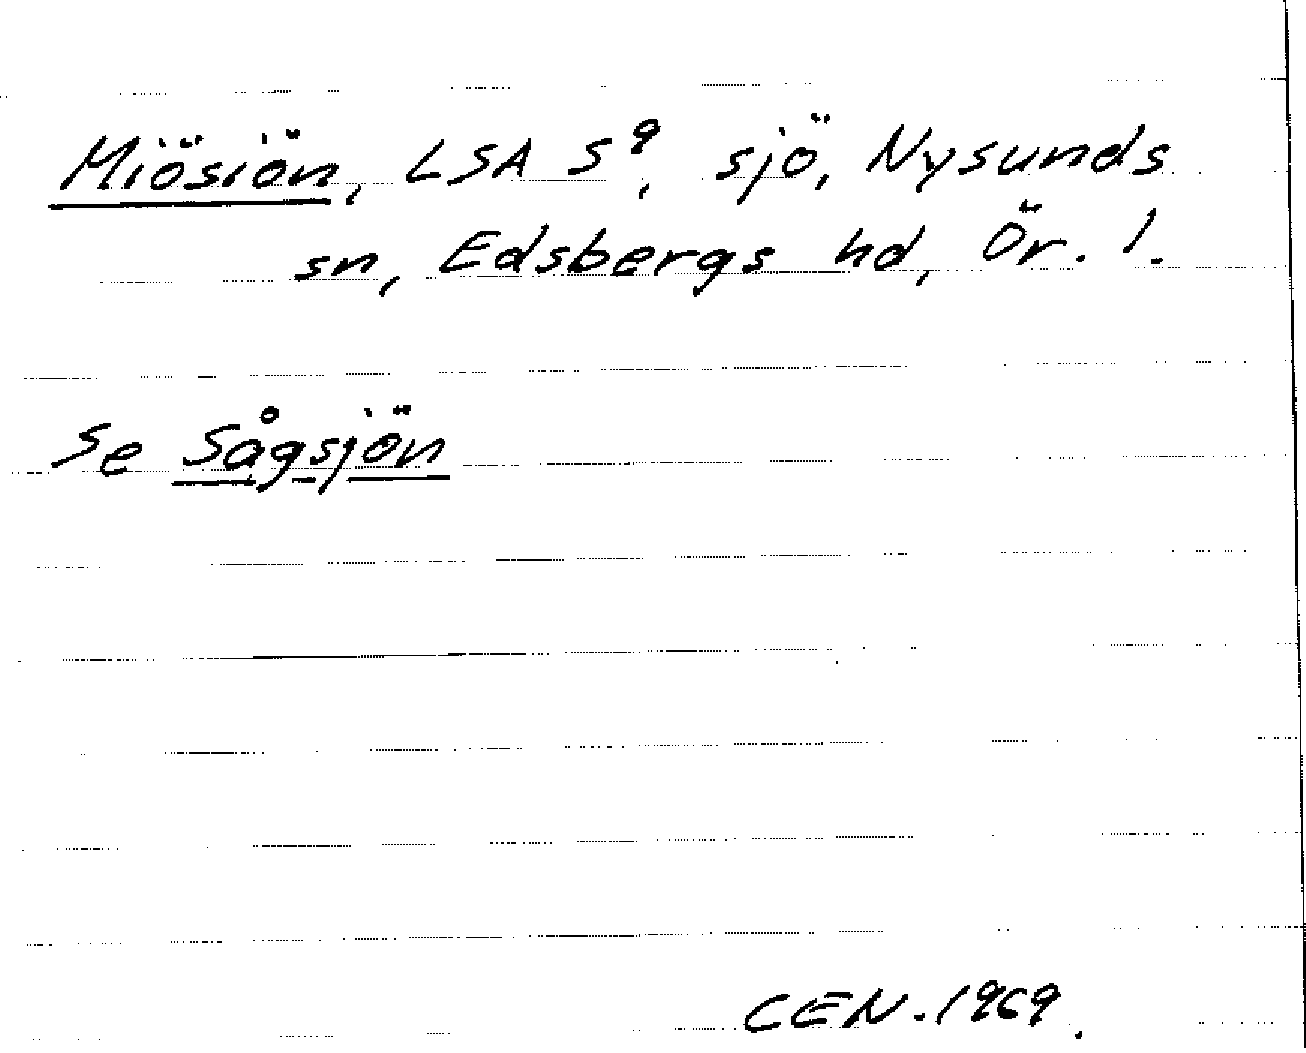 Miösiön, LSA S⁹, sjö, Nysunds
sn, Edsbergs hd, Ör. l.
Se Sågsjön
CEN. 1969.